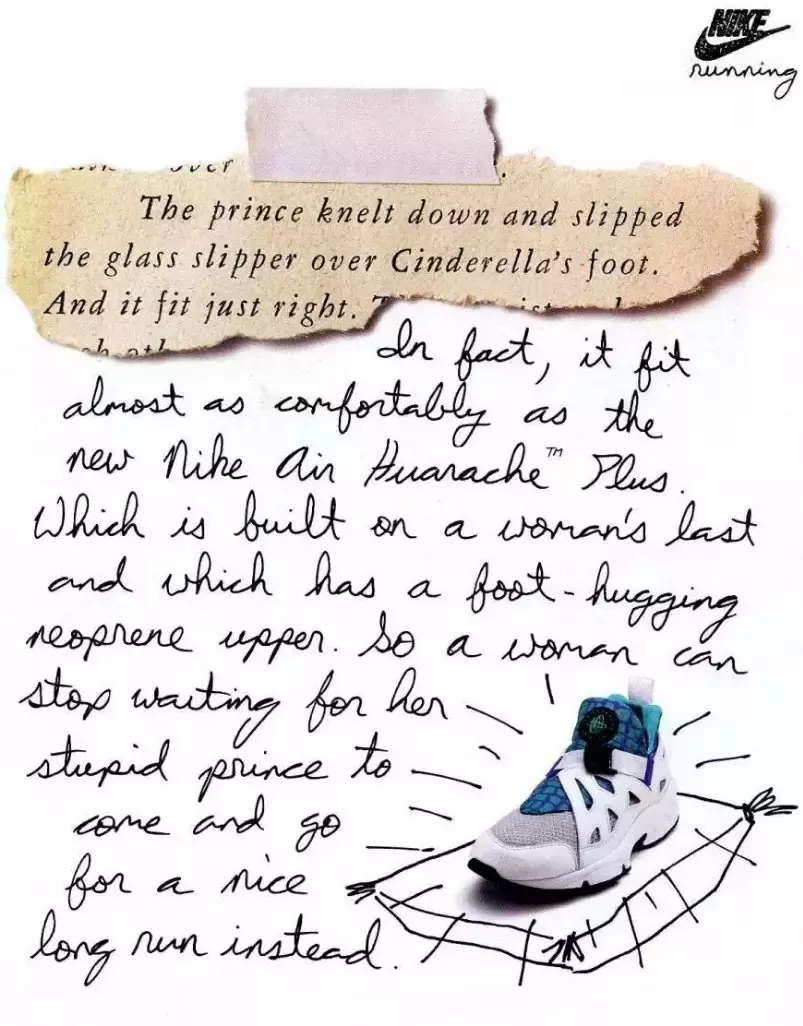 NIKE
running
The prince knelt down and slipped
the glass slipper over Cinderella's foot.
And it fit just right.
In fact, it fit
almost as comfortably as the
new Nike Air Huarache™ Plus.
Which is built on a woman's last
and which has a foot-hugging
neoprene upper. So a woman can
stop waiting for her
stupid prince to
come and go
for a nice
long run instead.